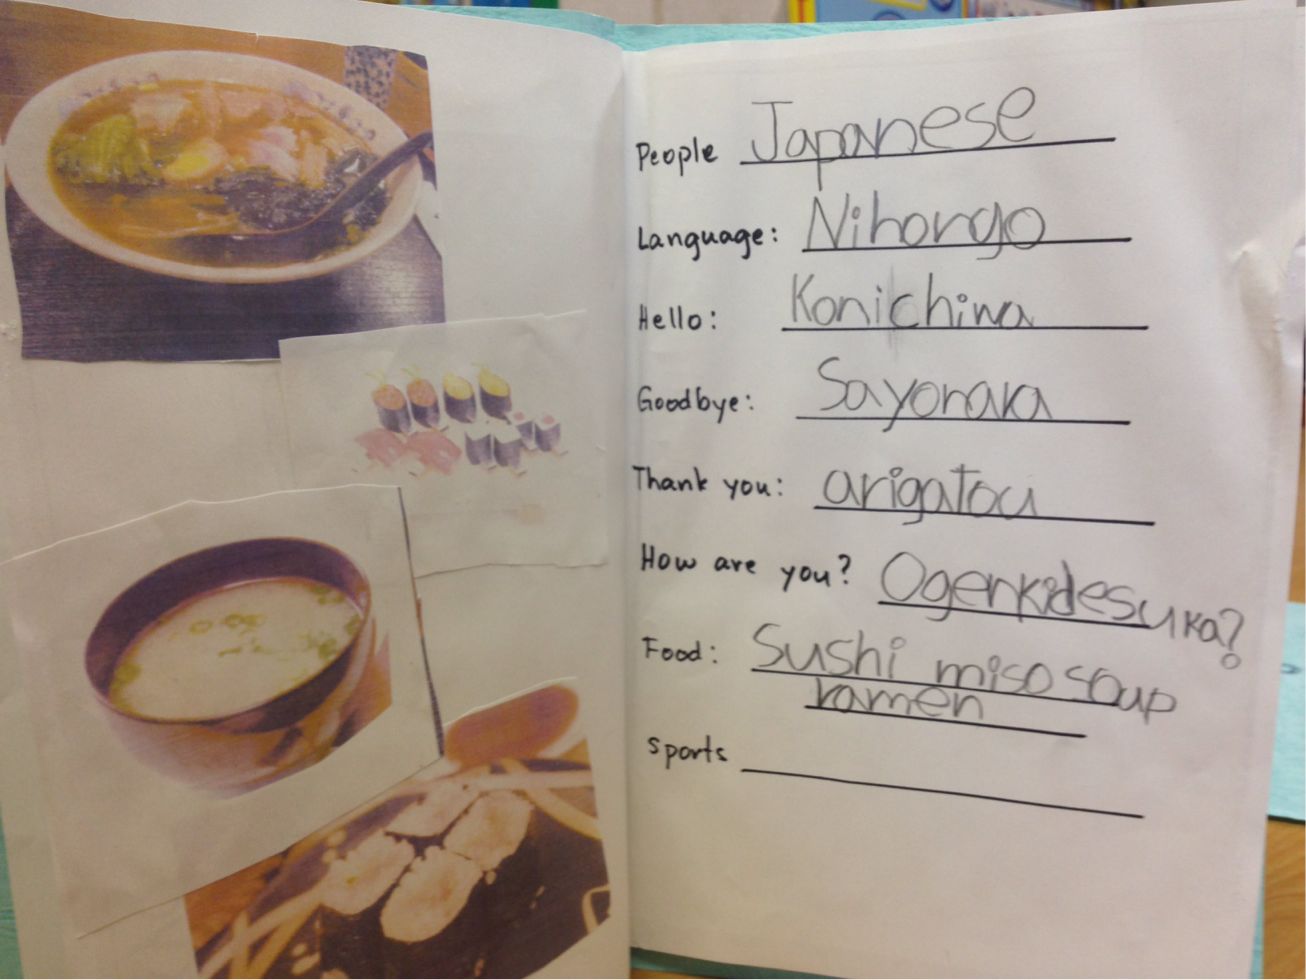 People Japanese
Language: Nihongo
Hello: Konichiwa
Goodbye: Sayonara
Thank you: arigatou
How are you? Ogenkidesuka?
Food: Sushi miso soup
ramen
sports